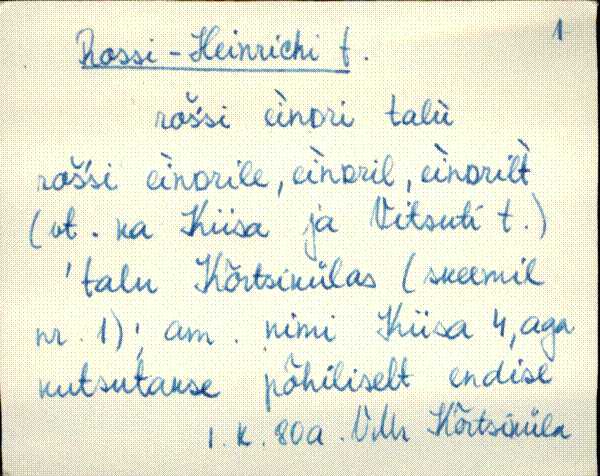 1
Rossi-Heinrichi t.
rošsi èinori talù
rošsi èinorile, èinoril, èinorilt̀
(vt. ka Kiisa ja Vitsuti t.)
'talu Kõrtsikülas (skeemil
nr. 1); am. nimi Kiisa 4, aga
kutsutakse põhiliselt endise
I. K. 80a. VMr Kõrtsiküla